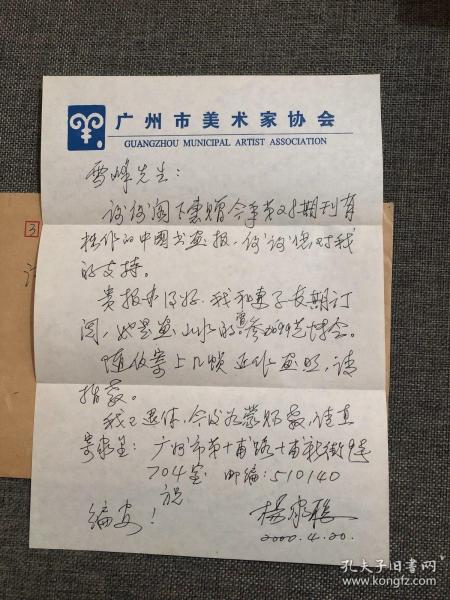 广州市美术家协会
GUANGZHOU MUNICIPAL ARTIST ASSOCIATION
雪峰先生：
谢谢阁下惠赠今年第21期刊有
拙作的中国书画报，谢谢您对我
的支持。
贵报办得好，我和妻子长期订
阅，她是画山水的，曾参加99艺博会。
随信寄上几帧近作画照，请
指教。
我已退休，今后如蒙赐教，请直
寄家里：广州市第十甫路十甫新街
704室 邮编：510140
祝
编安！
杨家聪
2000.4.20.
孔夫子旧书网
www.kongfz.com